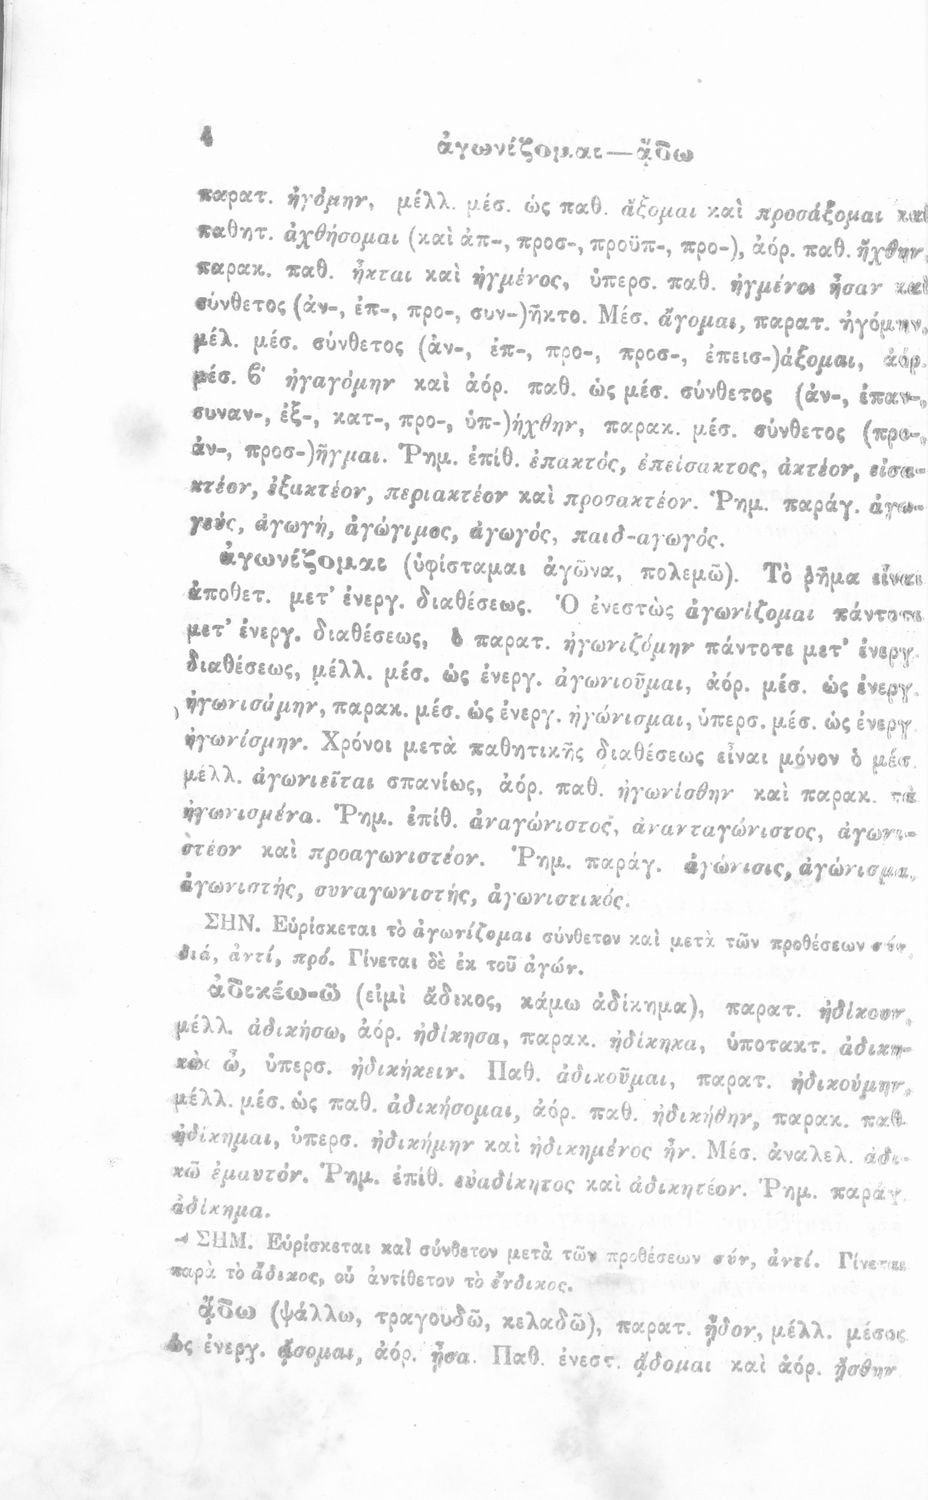 4
ἀγωνίζομαι—ᾄδω
παρατ. ἠγόμην, μέλλ. μέσ. ὡς παθ. ἄξομαι καὶ προσάξομαι καὶ
παθητ. ἀχθήσομαι (καὶ ἀπ-, προσ-, προϋπ-, προ-), ἀόρ. παθ. ἤχθην,
παρακ. παθ. ἦκται καὶ ἠγμένος, ὑπερσ. παθ. ἠγμένοι ἦσαν καὶ
σύνθετος (ἀν-, ἐπ-, προ-, συν-)ῆκτο. Μέσ. ἄγομαι, παρατ. ἠγόμην,
μέλ. μέσ. σύνθετος (ἀν-, ἐπ-, προ-, προσ-, ἐπεισ-)άξομαι, ἀόρ.
μέσ. β′ ἠγαγόμην καὶ ἀόρ. παθ. ὡς μέσ. σύνθετος (ἀν-, ἐπαν-,
συναν-, ἐξ-, κατ-, προ-, ὑπ-)ήχθην, παρακ. μέσ. σύνθετος (προ-,
ἀν-, προσ-)ῆγμαι. Ῥημ. ἐπίθ. ἐπακτός, ἐπείσακτος, ἀκτέον, εἰσα-
κτέον, ἐξακτέον, περιακτέον καὶ προσακτέον. Ῥημ. παράγ. ἀγω-
γεύς, ἀγωγή, ἀγώγιμος, ἀγωγός, παιδ-αγωγός.
ἀγωνίζομαι (ὑφίσταμαι ἀγῶνα, πολεμῶ). Τὸ ῥῆμα εἶναι
ἀποθετ. μετ’ ἐνεργ. διαθέσεως. Ὁ ἐνεστὼς ἀγωνίζομαι πάντοτε
μετ’ ἐνεργ. διαθέσεως, ὁ παρατ. ἠγωνιζόμην πάντοτε μετ’ ἐνεργ.
διαθέσεως, μέλλ. μέσ. ὡς ἐνεργ. ἀγωνιοῦμαι, ἀόρ. μέσ. ὡς ἐνεργ.
ἠγωνισάμην, παρακ. μέσ. ὡς ἐνεργ. ἠγώνισμαι, ὑπερσ. μέσ. ὡς ἐνεργ.
ἠγωνίσμην. Χρόνοι μετὰ παθητικῆς διαθέσεως εἶναι μόνον ὁ μέσ.
μέλλ. ἀγωνιεῖται σπανίως, ἀόρ. παθ. ἠγωνίσθην καὶ παρακ. τὰ
ἠγωνισμένα. Ῥημ. ἐπίθ. ἀναγώνιστος, ἀνανταγώνιστος, ἀγωνι-
στέον καὶ προαγωνιστέον. Ῥημ. παράγ. ἀγώνισις, ἀγώνισμα,
ἀγωνιστής, συναγωνιστής, ἀγωνιστικός.
ΣΗΝ. Εὑρίσκεται τὸ ἀγωνίζομαι σύνθετον καὶ μετὰ τῶν προθέσεων σύν,
διά, ἀντί, πρό. Γίνεται δὲ ἐκ τοῦ ἀγών.
ἀδικέω-ῶ (εἰμὶ ἄδικος, κάμω ἀδίκημα), παρατ. ἠδίκουν,
μέλλ. ἀδικήσω, ἀόρ. ἠδίκησα, παρακ. ἠδίκηκα, ὑποτακτ. ἀδικη-
κὼς ὦ, ὑπερσ. ἠδικήκειν. Παθ. ἀδικοῦμαι, παρατ. ἠδικούμην,
μέλλ. μέσ. ὡς παθ. ἀδικήσομαι, ἀόρ. παθ. ἠδικήθην, παρακ. παθ.
ἠδίκημαι, ὑπερσ. ἠδικήμην καὶ ἠδικημένος ἦν. Μέσ. ἀναλελ. ἀδι-
κῶ ἐμαυτόν. Ῥημ. ἐπίθ. εὐαδίκητος καὶ ἀδικητέον. Ῥημ. παράγ.
ἀδίκημα.
ΣΗΜ. Εὑρίσκεται καὶ σύνθετον μετὰ τῶν προθέσεων σύν, ἀντί. Γίνεται
παρὰ τὸ ἄδικος, οὗ ἀντίθετον τὸ ἔνδικος.
ᾄδω (ψάλλω, τραγουδῶ, κελαδῶ), παρατ. ᾖδον, μέλλ. μέσος
ὡς ἐνεργ. ᾄσομαι, ἀόρ. ᾖσα. Παθ. ἐνεστ. ᾄδομαι καὶ ἀόρ. ᾔσθην